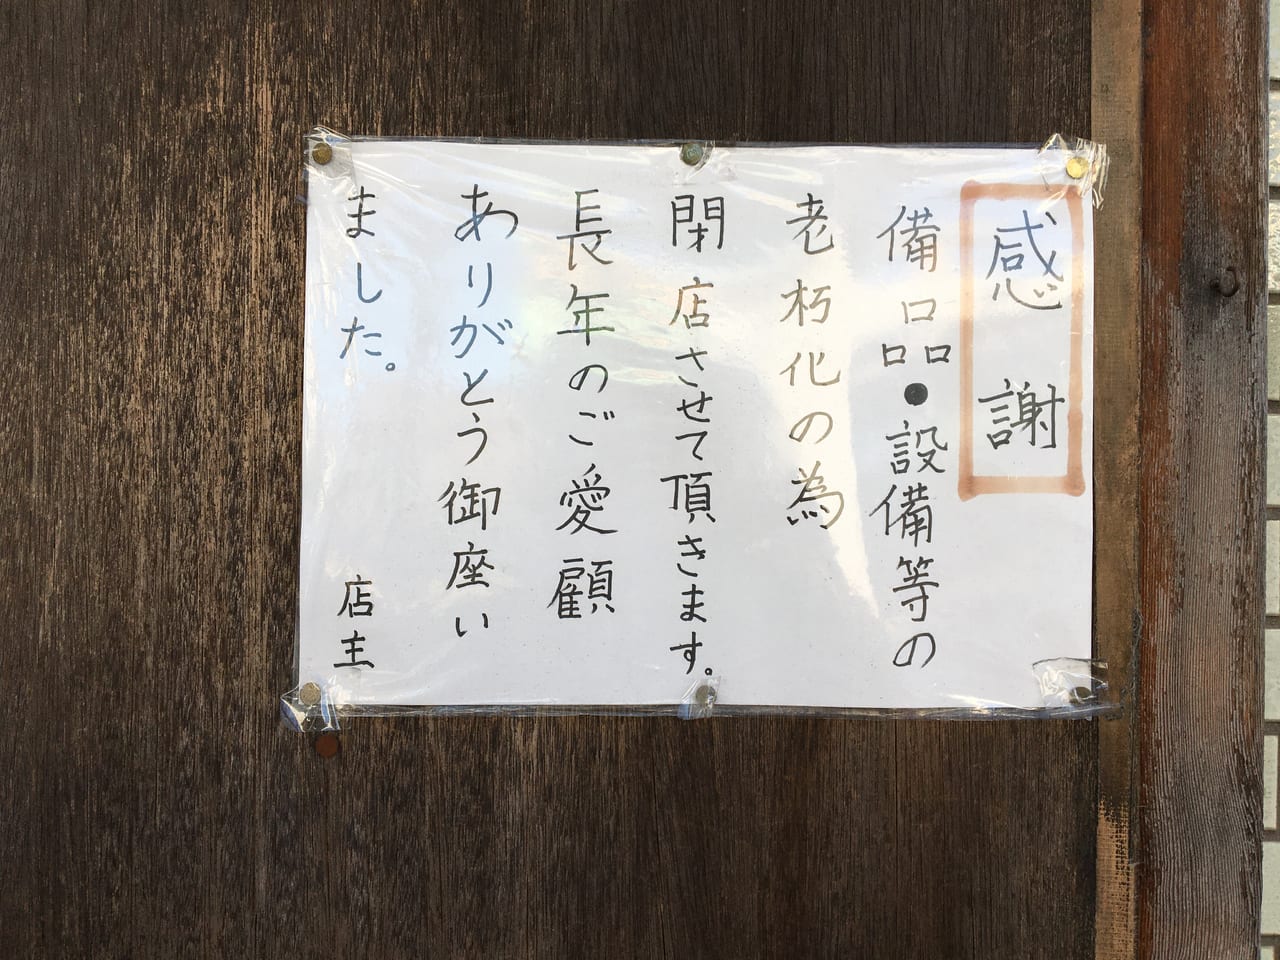 感謝
備品・設備等の
老朽化の為
閉店させて頂きます。
長年のご愛顧
ありがとう御座い
ました。
店主